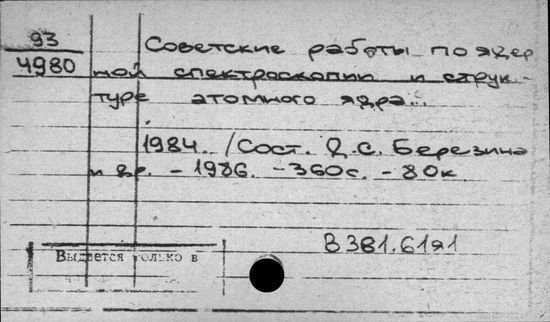 93
4980
Советские работы по ядер
ной спектроскопии и струк-
туре атомного ядра..
1984. /Сост. Л.С. Березина
и др. - 1986. - 360с. - 80к
В381.61я1
Выдается только в